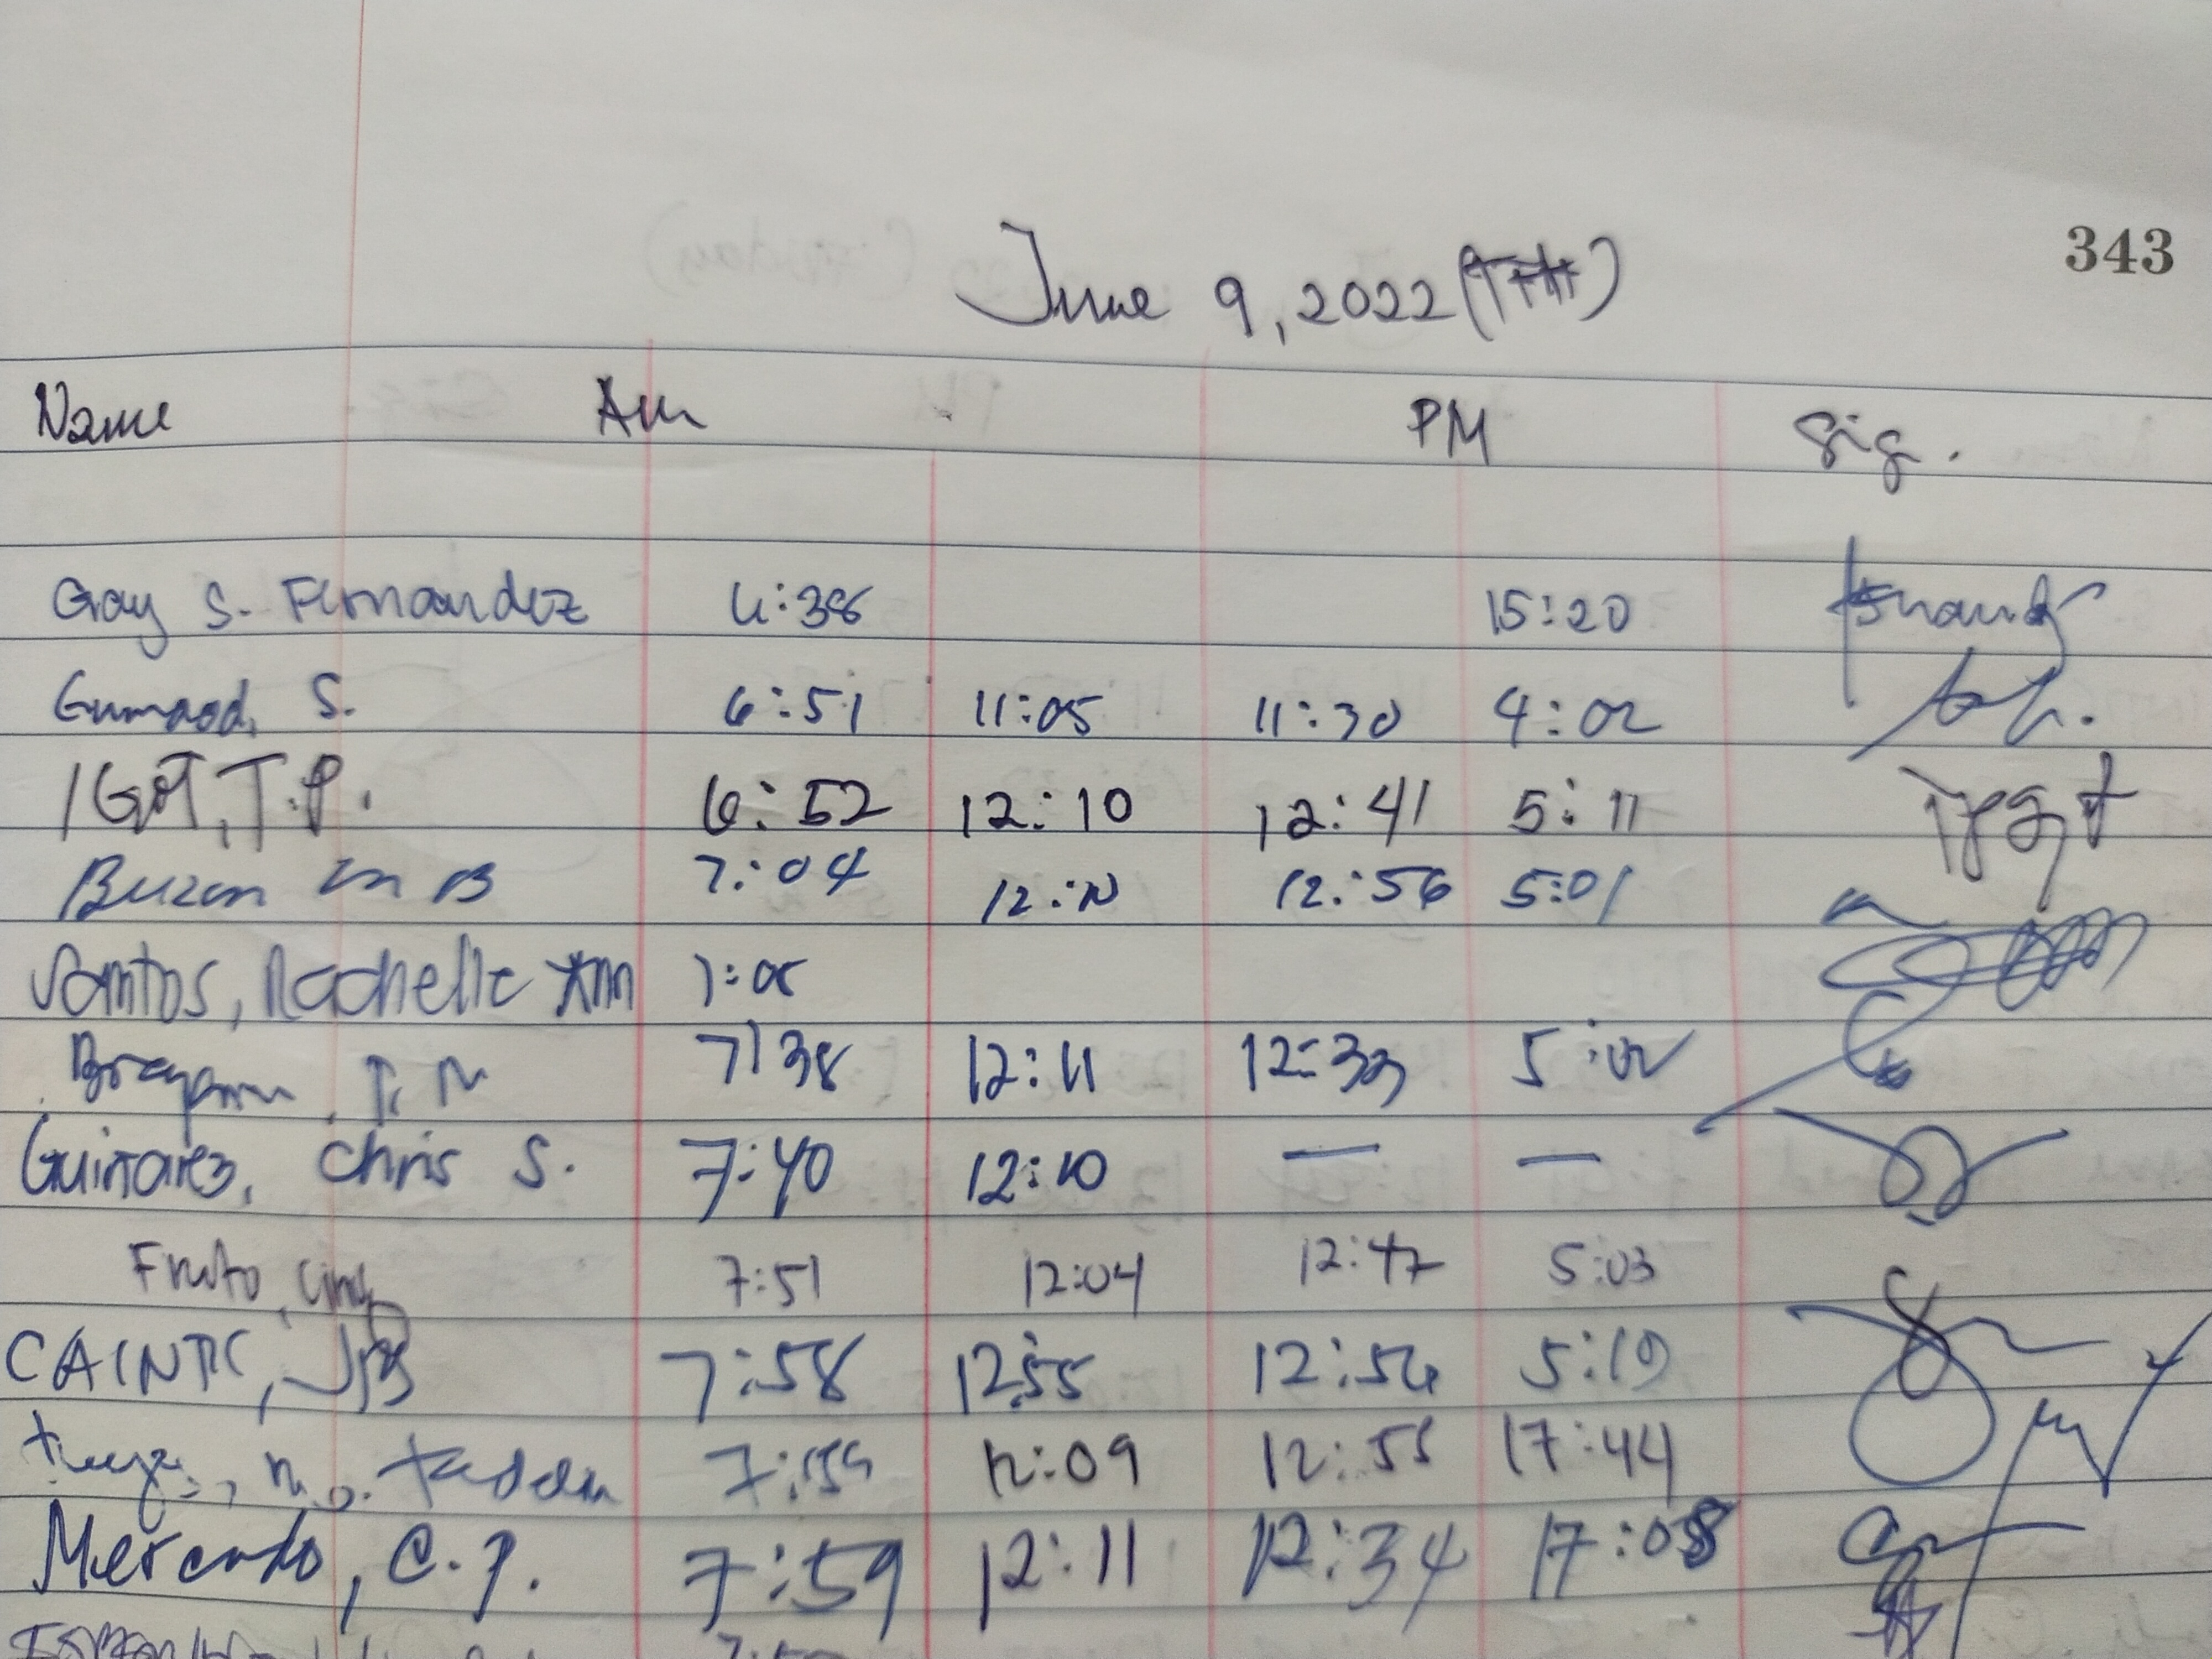 343
June 9, 2022 (TTH)
Name Am PM Sig.
Gay S. Fernandez 6:38 15:20
Gumaod, S. 6:51 11:05 11:30 4:02
IGOT, T.P. 6:52 12:10 12:41 5:11
Buzon B 7:04 12:10 12:56 5:01
Santos, Rachelle Ann 7:05
7:38 12:11 12:33 5:02
Guinarez, Chris S. 7:40 12:10 — —
Fruto, Cindy 7:51 12:04 12:47 5:03
CAINTIC, JB 7:58 12:55 12:56 5:19
7:59 12:09 12:55 17:44
Mercado, C.J. 7:59 12:11 12:34 17:08